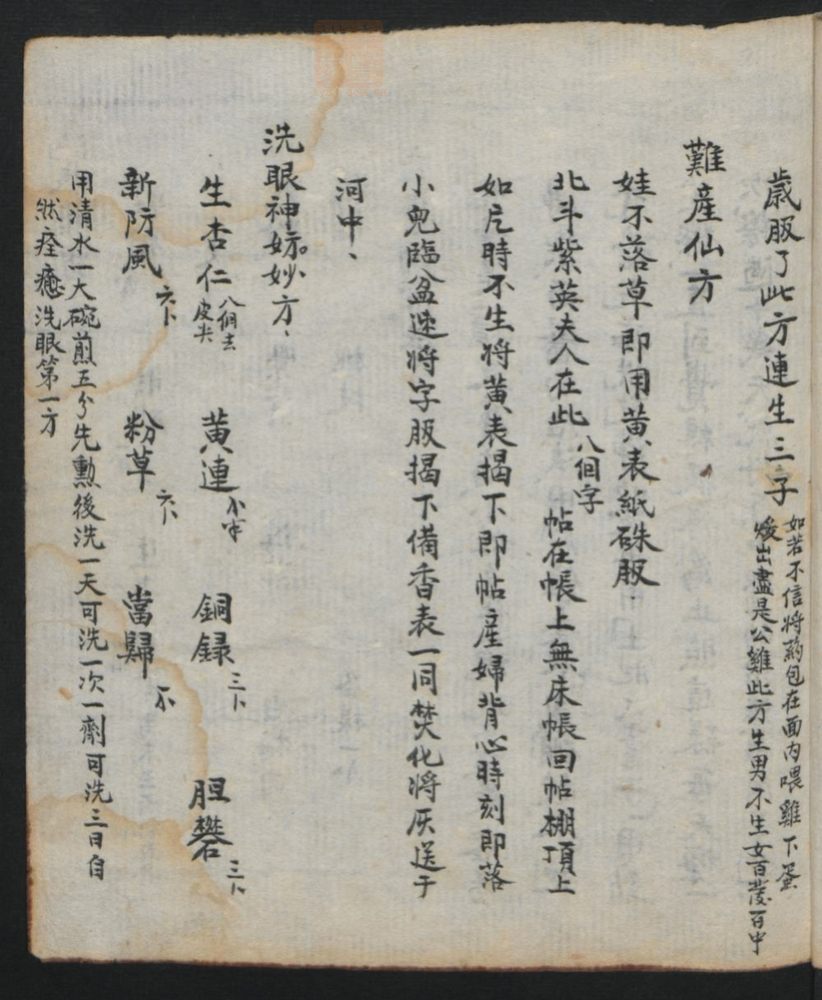 歲服了此方連生三子
如若不信將葯包在面内喂雞下蛋
煖出盡是公雞此方生男不生女百發百中
難產仙方
娃不落草即用黄表紙硃服
北斗紫英夫人在此 八個字 帖在帳上無床帳囬帖棚頂上
如片時不生將黄表揭下即帖產婦背心時刻即落
小兒臨盆速將字服揭下備香表一同焚化將灰送于
河中、
洗眼神妨妙方、
生杏仁 八個去皮尖 黄連 銅録 三卜 胆礬 三卜
新防風 六卜 粉草 六卜 當歸
用清水一大碗煎五分先勲後洗一天可洗一次一劑可洗三日自
然痊癒洗眼第一方